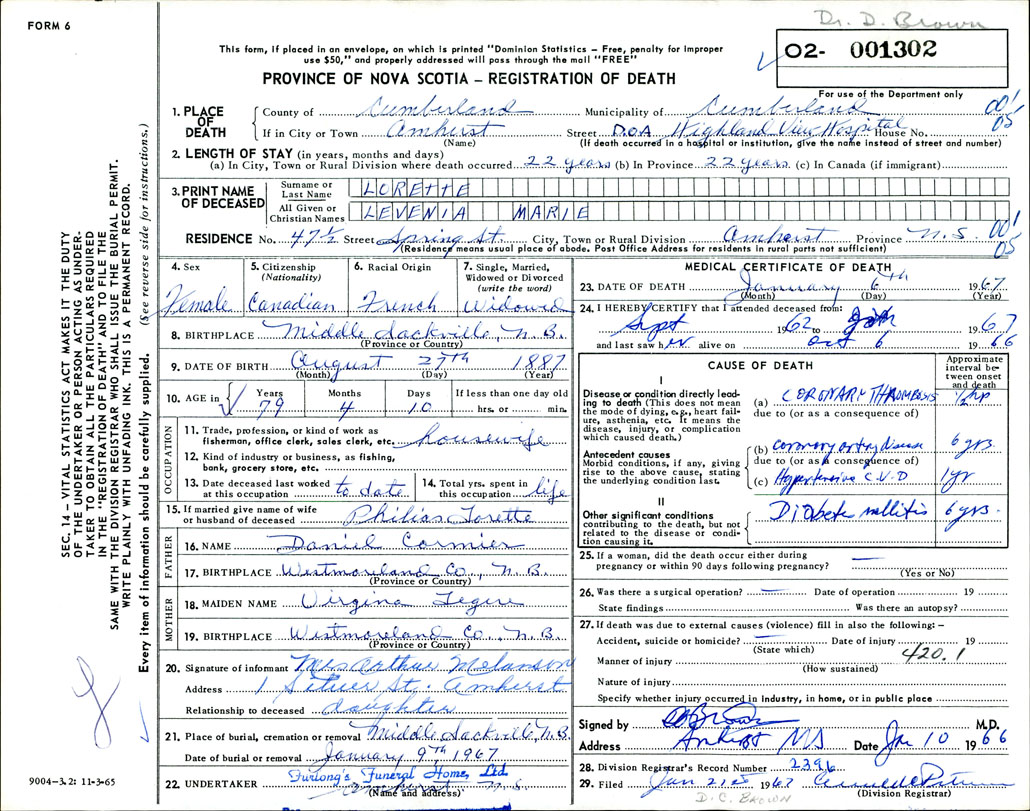 Dr. D. Brown
FORM 6
This form, if placed in an envelope, on which is printed "Dominion Statistics – Free, penalty for improper
use $50," and properly addressed will pass through the mail "FREE"
O2- 001302
PROVINCE OF NOVA SCOTIA – REGISTRATION OF DEATH
For use of the Department only
1. PLACE OF DEATH
County of Cumberland Municipality of Cumberland 001
If in City or Town Amherst Street D.O.A Highland View Hospital House No. 05
(Name) (If death occurred in a hospital or institution, give the name instead of street and number)
2. LENGTH OF STAY (in years, months and days)
(a) In City, Town or Rural Division where death occurred 22 years (b) In Province 22 years (c) In Canada (if immigrant)
3. PRINT NAME OF DECEASED
Surname or Last Name LORETTE
All Given or Christian Names LEVENIA MARIE
RESIDENCE No. 47½ Street Spring St. City, Town or Rural Division Amherst Province N.S. 001 05
(Residence means usual place of abode. Post Office Address for residents in rural parts not sufficient)
4. Sex 5. Citizenship (Nationality) 6. Racial Origin 7. Single, Married, Widowed or Divorced (write the word)
Female Canadian French Widowed
8. BIRTHPLACE Middle Sackville, N.B.
(Province or Country)
9. DATE OF BIRTH August 27th 1887
(Month) (Day) (Year)
10. AGE in Years Months Days If less than one day old
79 4 10 hrs. or min.
OCCUPATION
11. Trade, profession, or kind of work as
fisherman, office clerk, sales clerk, etc. housewife
12. Kind of industry or business, as fishing,
bank, grocery store, etc.
13. Date deceased last worked at this occupation to date
14. Total yrs. spent in this occupation life
15. If married give name of wife
or husband of deceased Philias Lorette
FATHER
16. NAME Daniel Cormier
17. BIRTHPLACE Westmoreland Co., N.B.
(Province or Country)
MOTHER
18. MAIDEN NAME Virgina Legere
19. BIRTHPLACE Westmoreland Co., N.B.
(Province or Country)
20. Signature of informant Mrs Arthur Melanson
Address 1 St. Amherst
Relationship to deceased daughter
21. Place of burial, cremation or removal Middle Sackville, N.B.
Date of burial or removal January 9th 1967
22. UNDERTAKER Furlong's Funeral Home, Ltd.
Amherst N.S.
(Name and address)
MEDICAL CERTIFICATE OF DEATH
23. DATE OF DEATH January 6th 1967
(Month) (Day) (Year)
24. I HEREBY CERTIFY that I attended deceased from:
Sept 1962 to Jan 1967
and last saw her alive on Oct 6 1966
CAUSE OF DEATH
Approximate interval between onset and death
I
Disease or condition directly leading to death (This does not mean
the mode of dying, e.g., heart failure, asthenia, etc. It means the
disease, injury, or complication
which caused death.)
(a) CORONARY THROMBOSIS ½ hr
due to (or as a consequence of)
Antecedent causes
Morbid conditions, if any, giving
rise to the above cause, stating
the underlying condition last.
(b) coronary artery disease 6 yrs.
due to (or as a consequence of)
(c) Hypertensive C.V.D 1yr
II
Other significant conditions
contributing to the death, but not
related to the disease or condition causing it.
Diabetes mellitis 6 yrs.
25. If a woman, did the death occur either during
pregnancy or within 90 days following pregnancy? —
(Yes or No)
26. Was there a surgical operation? — Date of operation 19
State findings Was there an autopsy?
27. If death was due to external causes (violence) fill in also the following: –
Accident, suicide or homicide? — Date of injury 19
(State which)
420.1
Manner of injury
(How sustained)
Nature of injury
Specify whether injury occurred in industry, in home, or in public place
Signed by DBrown M.D.
Address Amherst NS Date Jan 10 1966
28. Division Registrar's Record Number 2396
29. Filed Jan 21st 1967
(Division Registrar)
D. C. BROWN
SEC. 14 – VITAL STATISTICS ACT MAKES IT THE DUTY
OF THE UNDERTAKER OR PERSON ACTING AS UNDER-
TAKER TO OBTAIN ALL THE PARTICULARS REQUIRED
IN THE "REGISTRATION OF DEATH" AND TO FILE THE
SAME WITH THE DIVISION REGISTRAR WHO SHALL ISSUE THE BURIAL PERMIT.
WRITE PLAINLY WITH UNFADING INK. THIS IS A PERMANENT RECORD.
Every item of information should be carefully supplied. (See reverse side for instructions.)
9004–3.2: 11-3-65